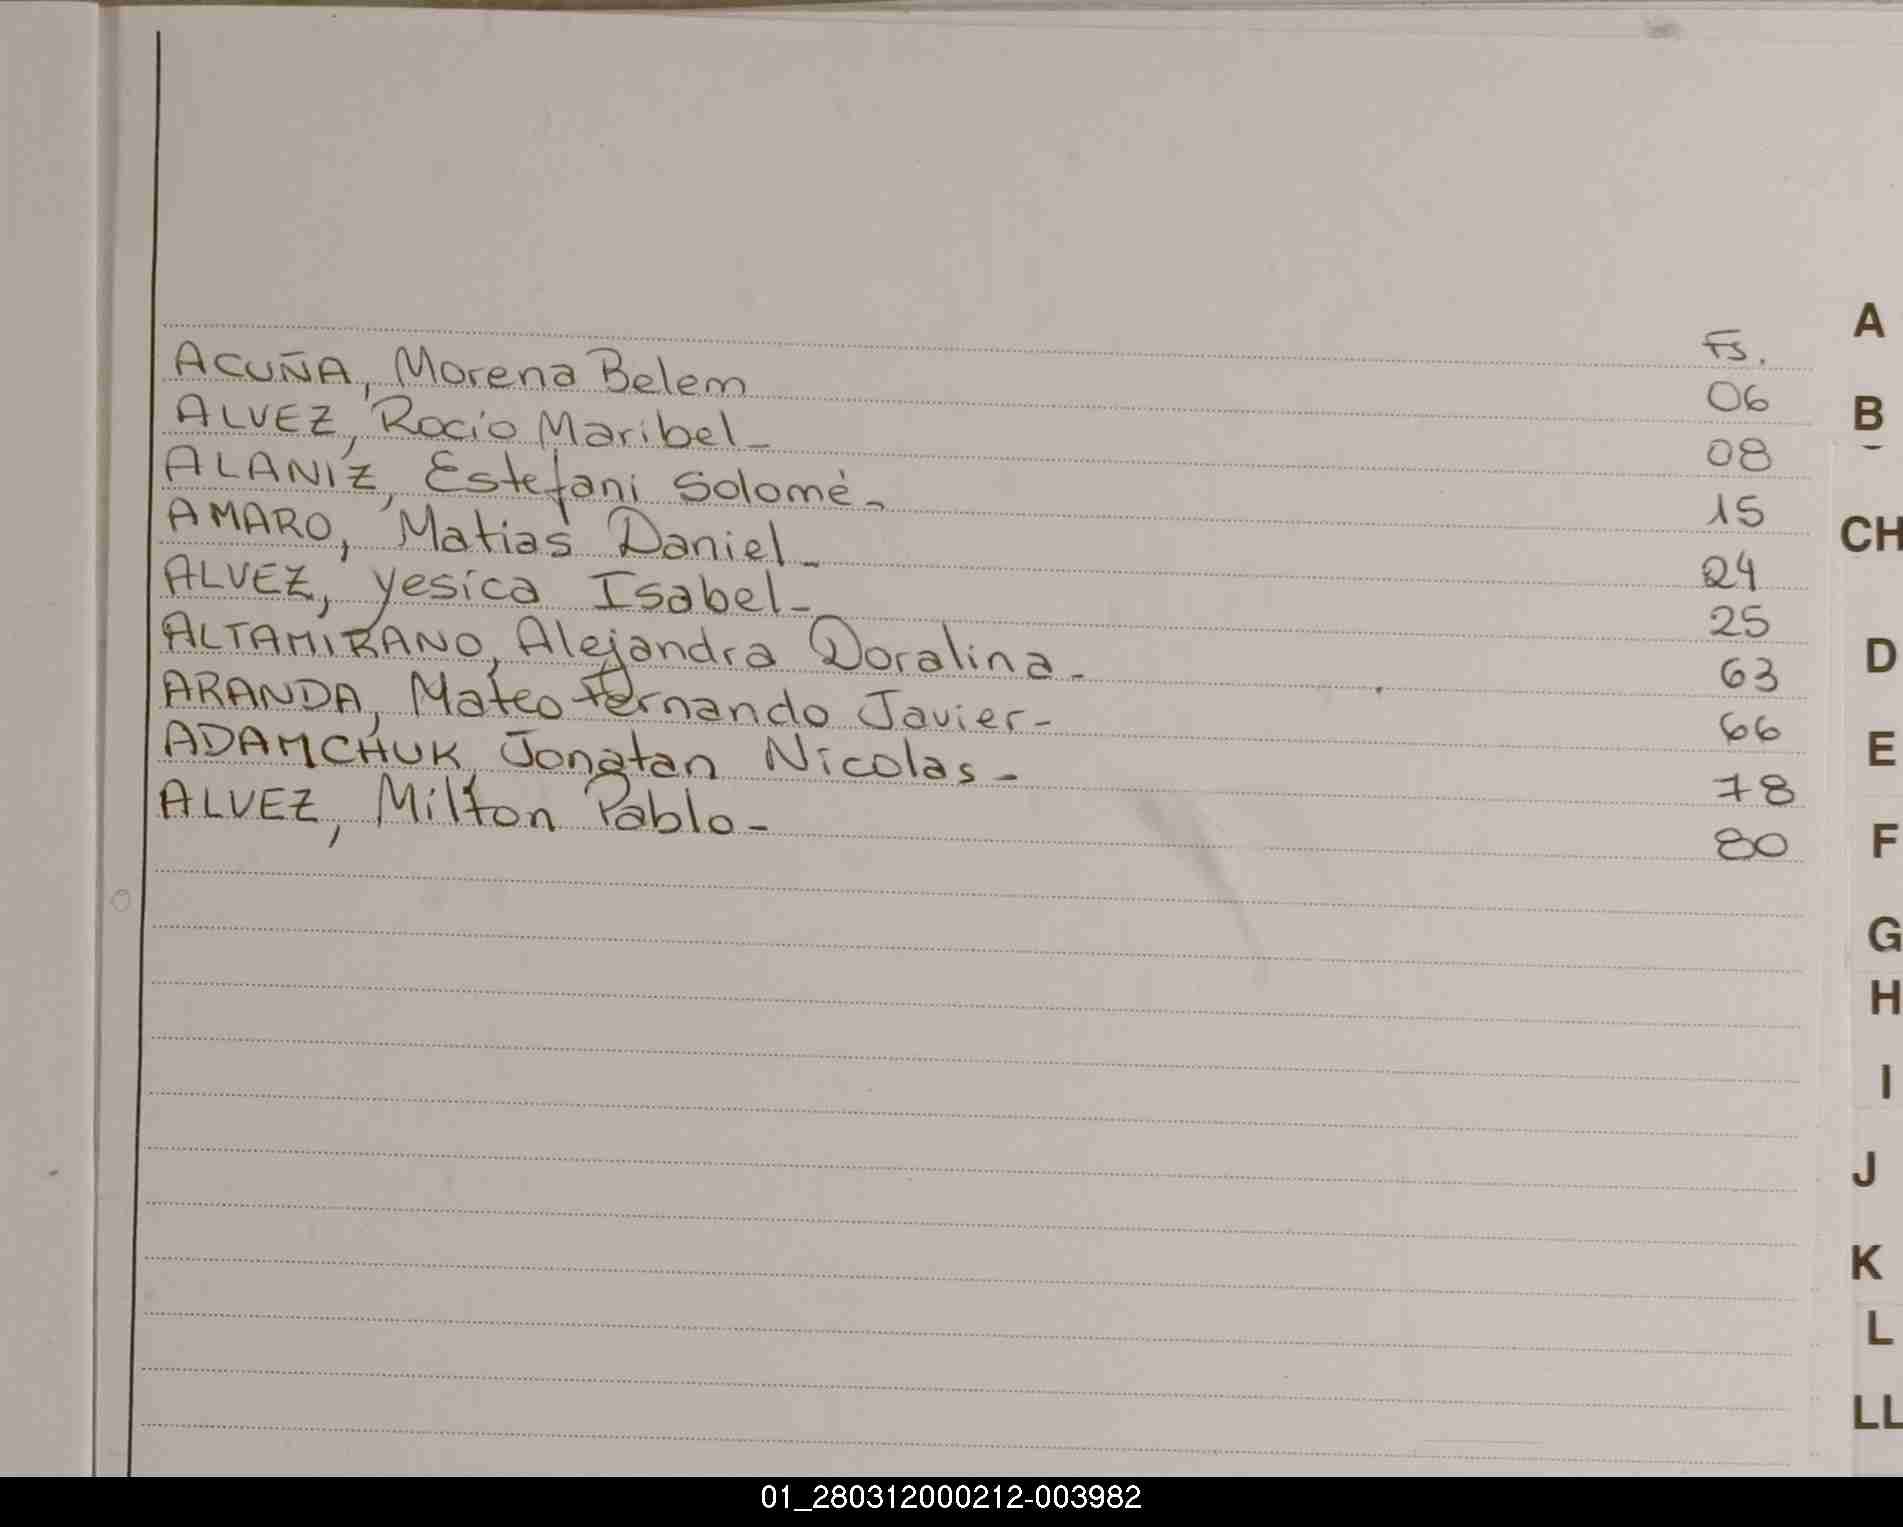 Fs.
ACUÑA, Morena Belem 06
ALVEZ, Rocio Maribel_ 08
ALANIZ, Estefani Solomé_ 15
AMARO, Matias Daniel_ 24
ALVEZ, Yesica Isabel_ 25
ALTAMIRANO, Alejandra Doralina_ 63
ARANDA, Mateo Fernando Javier- 66
ADAMCHUK, Jonatan Nicolas_ 78
ALVEZ, Milton Pablo_ 80
A
B
CH
D
E
F
G
H
I
J
K
L
LL
01_280312000212-003982